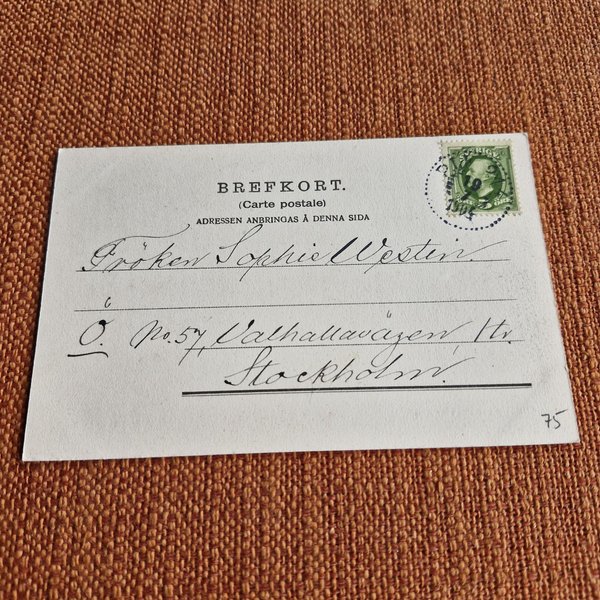 BREFKORT.
(Carte postale)
ADRESSEN ANBRINGAS Å DENNA SIDA
SVERIGE
Fröken Sophie Westin.
i
Ö. No. 57, Valhallavägen, 1tr.
Stockholm.
75